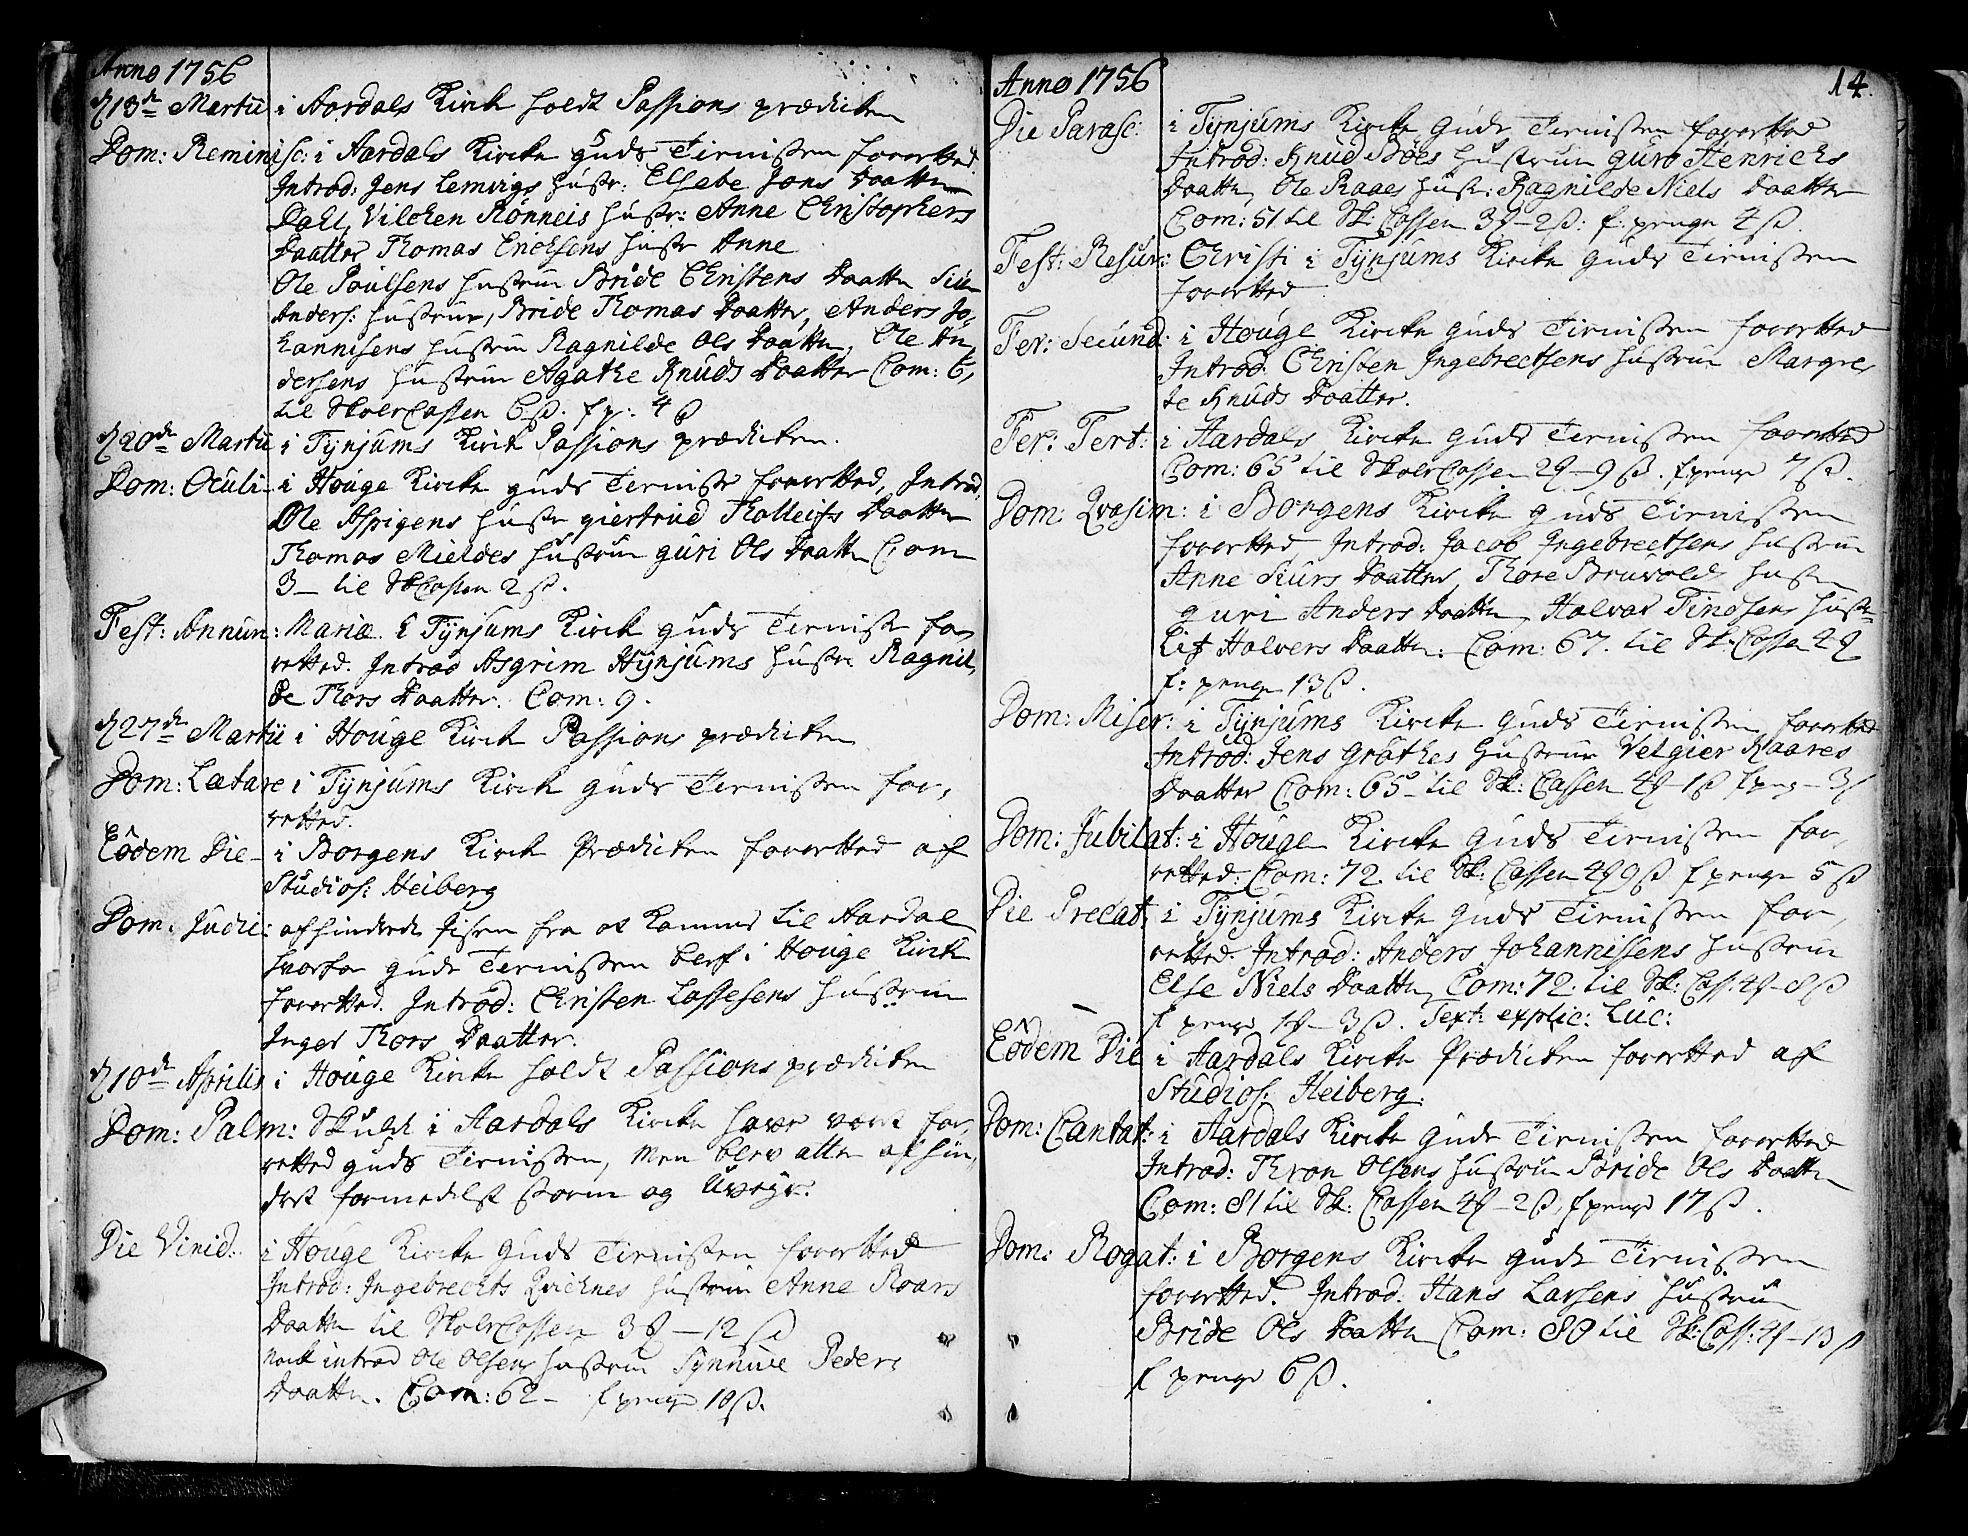 Anno 1756
d 13de Martii i Aardals Kirck holdt Passions prædicken
Dom: Reminisc: i Aardals Kircke Guds Tienisten forretted
Introd: Jens Lemvigs Hustr: Elsebe Jens Daatter
Dahl, Vilchen Rönneis Hustr: Anne Christophers
Daatter Thomas Enochsens Hustr Anne
Ole Poulsens Hustrue Bride Christens Daatter Siur
Anders: Hustrue, Bride Thomas Daatter, Anders Jo,
hannisens Hustrue Ragnilde Ols Daatter, Ole An,
dersens Hustrue Agathe Knuds Daatter Com: 6,
til Skole Cassen 6 ß. f p: 4 ß
d 20de Martii i Tynjums Kirck Passions prædicken.
Dom: Oculi i Houge Kircke Guds Tieniste forretted, Introd,
Ole Aspigens Hustr giertrud Tholleifs Daatter
Thomas Mieldes Hustrue guri Ols Daatter Com
3 – til Sk Cassen 2 ß.
Fest: Annun: Mariæ. i Tynjums Kirck Guds Tieniste for,
retted. Introd Asgrim Hynjums Hustru Ragnil,
de Thors Daatter. Com: 9.
d 27de Martii i Houge Kirck Passions prædicken
Dom: Lætare i Tynjums Kirck Guds Tienisten for,
retted.
Eôdem Die – i Borgens Kirck Prædicken forretted af
Studios: Heiberg
Dom. Judic: afhindrede Jisen fra at komme til Aardal
hvorfor Guds Tienisten blef i Houge Kirck
forrettet. Introd: Christen Lassesens Hustrue
Inger Thors Daatter.
d 10de Aprilis i Houge Kircke holdt Passions prædicken
Dom: Palm: Skulde i Aardals Kircke have været for,
retted Guds Tienisten, men blev atter afhin,
dret formedelst storm og Uveyr.
Die Virid: i Houge Kircke Guds Tienisten forretted
Introd: Ingebrechts Qvichnes Hustrue Anne Roars
Daatter til Skole Cassen 3 – 12 ß
Noch introd Ole Olsens Hustrue Synnive Peders
Daatter. Com: 62 – f penge 10 ß.
Anno 1756
14.
Die Parasc: i Tynjums Kircke Guds Tienisten forretted
Introd: Knud Böes Hustrue guro Henrichs
Daatter, Ole Raaes Hustr: Ragnilde Niels Daatter
Com: 51 til Sk: Cassen 3 – 2 ß: f: penge 4 ß.
Fest: Resur: Christi i Tynjums Kircke Guds Tienisten
forretted
Fer: Secund: i Houge Kircke Guds Tienisten forretted
Introd. Christen Ingebrechtsens Hustrue Margre,
te Knuds Daatter.
Fer: Tert: i Aardals Kircke Guds Tienisten forretted
Com: 65 til Skole Cassen 2 – 9 ß. f penge 7 ß.
Dom: Qvasim: i Borgens Kircke Guds Tienisten
forretted, Introd: Jacob Ingebrechtsens Hustrue
Anne Siurs Daatter, Thore Bruvolds Hustru
guri Anders Daatter, Halvor Findsens Hustr
Lif Halvers Daatter. Com: 67. til Sk: Cassen 4
f: penge 13 ß.
Dom: Miser: i Tynjums Kircke Guds Tienisten forrettet
Introd: Jens Gröthes Hustrue Velgier Kaares
Daatter Com: 65 – til Sk: Cassen 4 – 1 ß f peng – 3 ß
Dom: Jubilat: i Houge Kircke Guds Tienisten for,
retted: Com: 72. til Sk: Cassen 4 9 ß f penge 5 ß
Die Precat: i Tynjums Kircke Guds Tienisten for,
retted. Introd: Anders Johannissens Hustrue
Else Niels Daatter, Com: 72. til Sk: Cass: 4 – 8 ß
f penge 1 – 3 ß. Text: explic: Luc:
Eôdem Die i Aardals Kircke Prædicken forrettet af
Studios: Heiberg:
Dom: Cantat: i Aardals Kircke Guds Tienisten forrettet
Introd: Thron Olsens Hustrue Bride Ols Daatter
Com: 81 til Sk: Cassen 4 – 2 ß, f penge 17 ß.
Dom: Rogat: i Borgens Kircke Guds Tienisten
forrettet. Introd: Hans Larsens Hustrue
Bride Ols Daatter Com: 80 til Sk: Cass: 4 – 13 ß
f penge 6 ß.